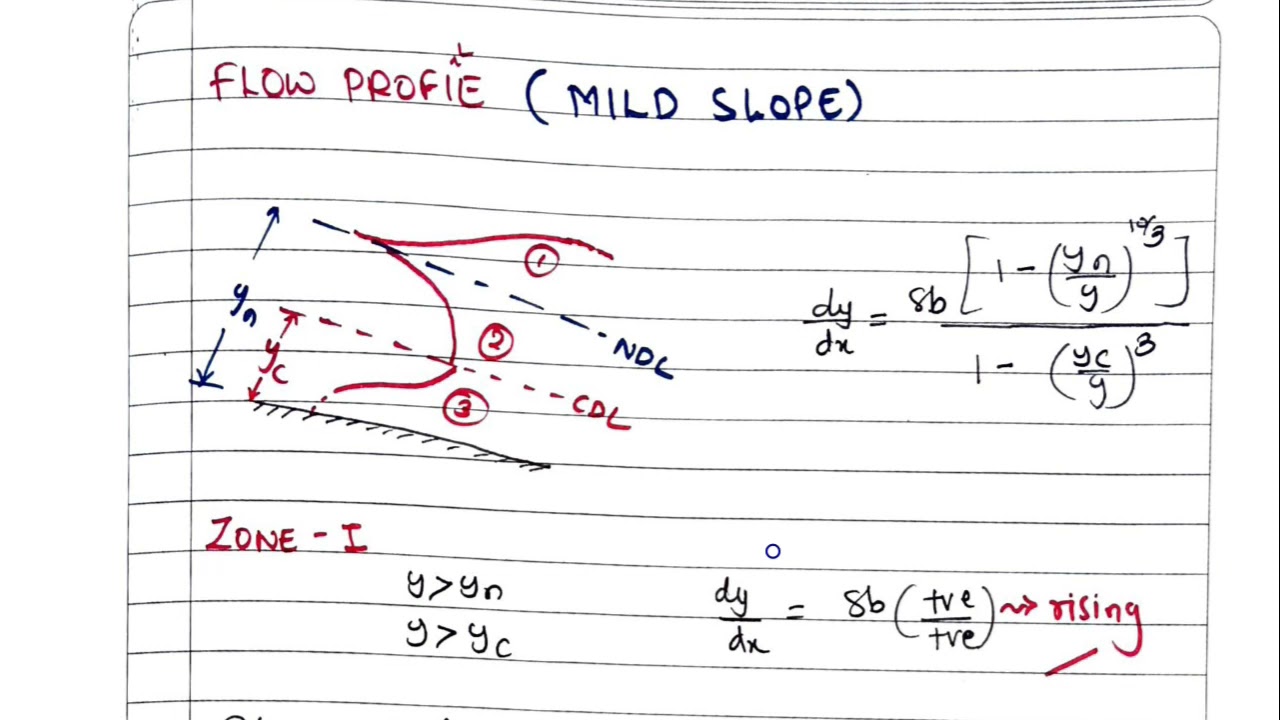 FLOW PROFIlE (MILD SLOPE)
yn
yc
①
②
③
NDL
CDL
dy/dx = Sb [1 - (yn/y)^10/3] / 1 - (yc/y)^3
ZONE - I
y > yn
y > yc
dy/dx = Sb (+ve/+ve) ⇝ rising